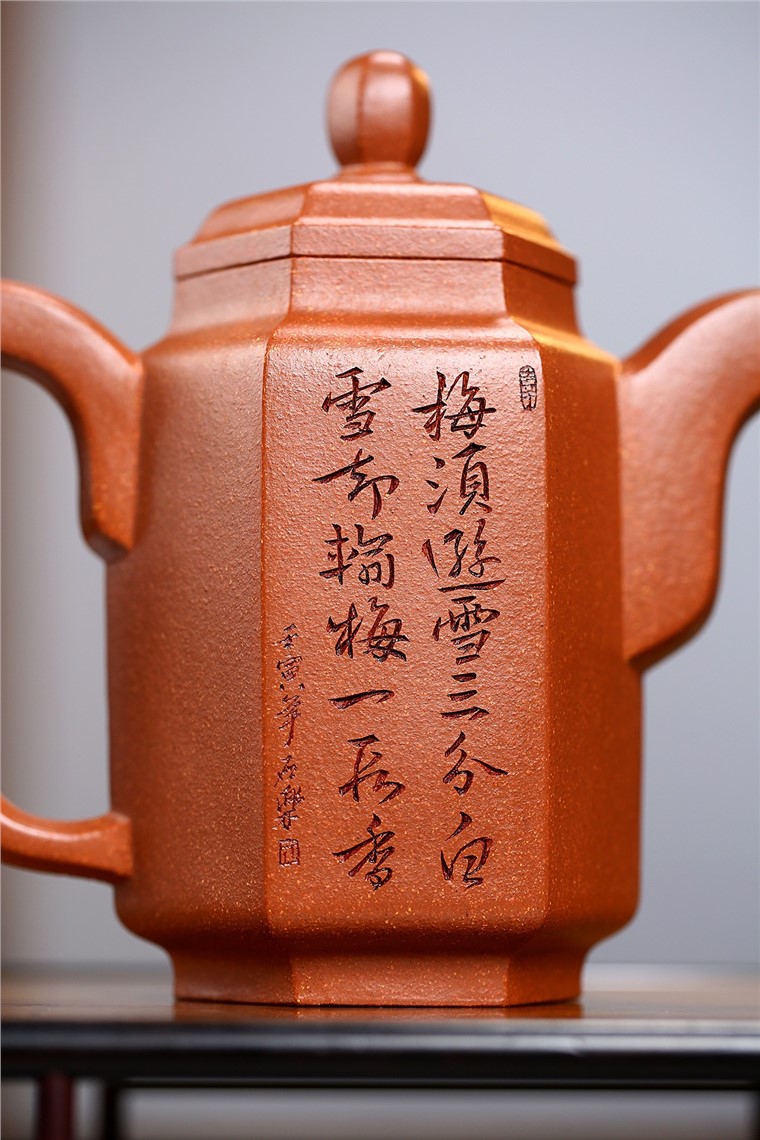 梅湏遜雪三分白
雪却輸梅一段香
壬寅